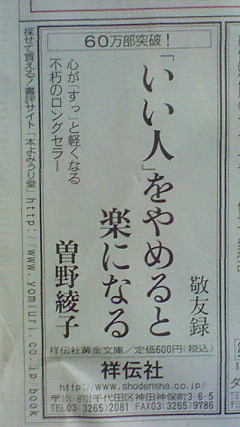 60万部突破!
「いい人」をやめると
楽になる
敬友録
心が“すっ”と軽くなる
不朽のロングセラー
曽野綾子
祥伝社黄金文庫/定価600円(税込)
祥伝社
http://www.shodensha.co.jp/
千代田区神田神保町3-6-5
TEL03(3265)2081 FAX03(3265)9786
探せて買える!書評サイト「本よみうり堂」http://www.yomiuri.co.jp/book